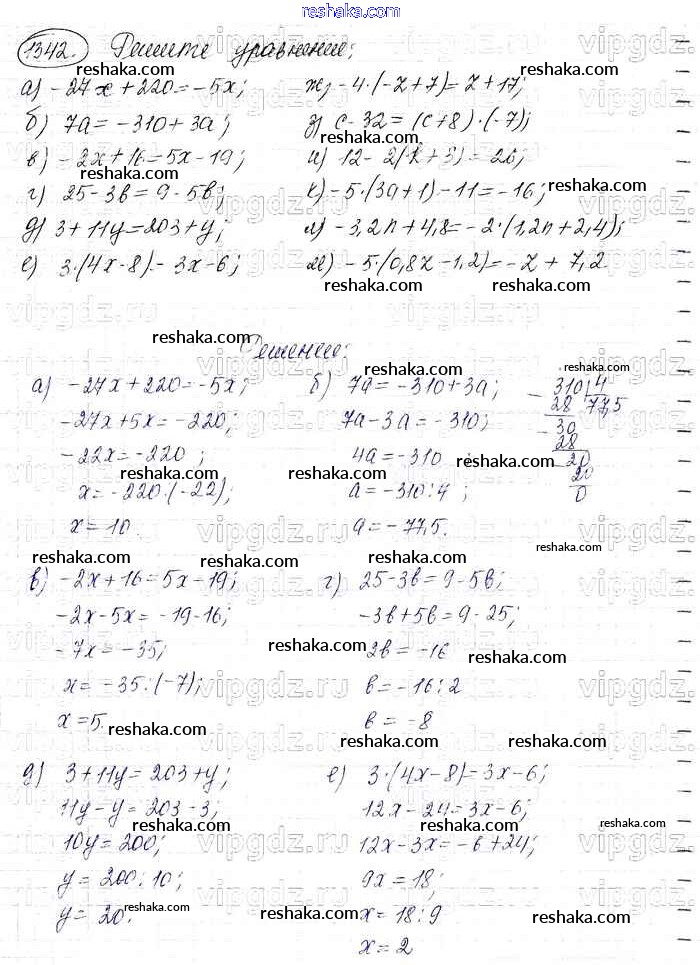 reshaka.com
1342. Решите уравнение:
а) -27x + 220 = -5x; ж) -4·(-z+7) = z+17;
б) 7a = -310 + 3a; з) c-32 = (c+8)·(-7);
в) -2x+16=5x-19; и) 12-2(k+3) = 26;
г) 25-3b = 9-5b; к) -5·(3a+1)-11=-16;
д) 3+11y=203+y; л) -3,2n+4,8=-2·(1,2n+2,4);
е) 3·(4x-8) = 3x-6; м) -5·(0,8z-1,2)=-z+7,2
Решение:
а) -27x+220=-5x; б) 7a=-310+3a; 310 4
-27x+5x=-220; 7a-3a=-310; 28 77,5
-22x=-220; 4a=-310 30
28
x=-220:(-22); a=-310:4; 20
20
x=10. a=-77,5. 0
в) -2x+16=5x-19; г) 25-3b=9-5b;
-2x-5x=-19-16; -3b+5b=9-25;
-7x=-35; 2b=-16
x=-35:(-7); b=-16:2
x=5. b=-8
д) 3+11y=203+y; е) 3·(4x-8)=3x-6;
11y-y=203-3; 12x-24=3x-6;
10y=200; 12x-3x=-6+24;
y=200:10; 9x=18;
y=20. x=18:9
x=2